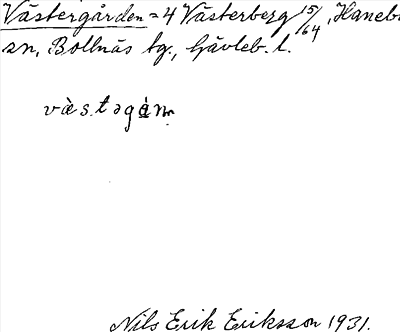 Västergården = 4 Västerberg 15/64, Haneb
sn, Bollnäs tg., Gävleb. l.
Nils Erik Eriksson 1931.